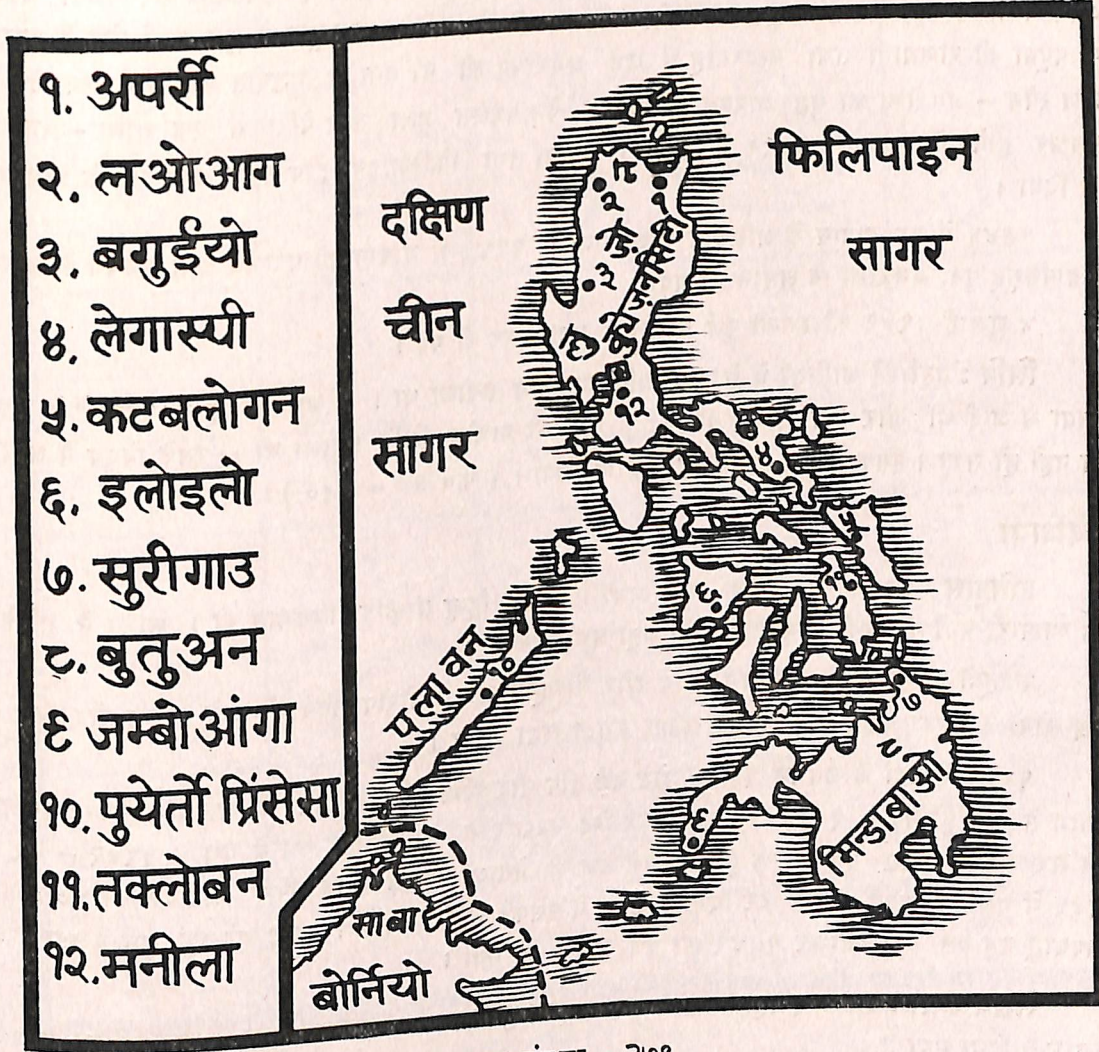 १. अपर्री
२. लओआग
३. बगुईयो
४. लेगास्पी
५. कटबलोगन
६. इलोइलो
७. सुरीगाउ
८. बुतुअन
९ जम्बोआंगा
१०. पुयेर्तो प्रिंसेसा
११. तक्लोबन
१२. मनीला
दक्षिण
चीन
सागर
फिलिपाइन
सागर
२
१
३
१२
४
५
६
११
१०
पलावन
७
८
९
मिन्डाबाओ
साबा
बोर्नियो